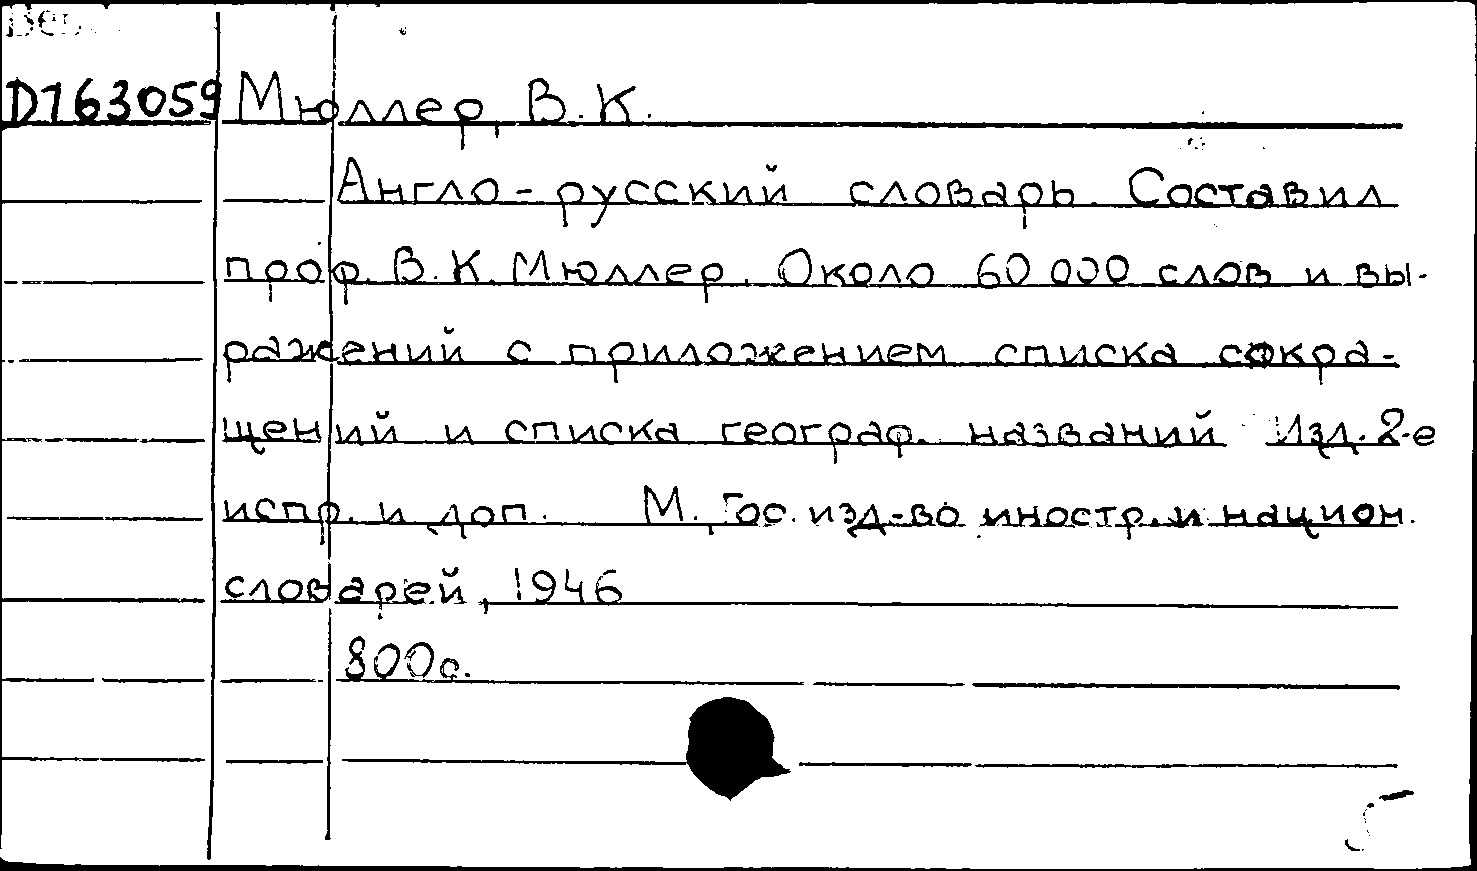 D163059 Мюллер, В. К.
Англо-русский словарь. Составил
проф. В. К. Мюллер. Около 60 000 слов и вы-
ражений с приложением списка сокра-
щений и списка географ. названий Изд. 2-е
испр. и доп. М., Гос. изд-во иностр. и национ.
словарей, 1946
800с.